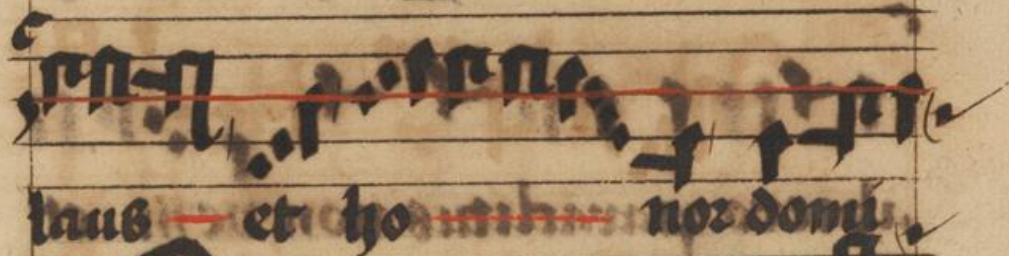 laus et honor domi